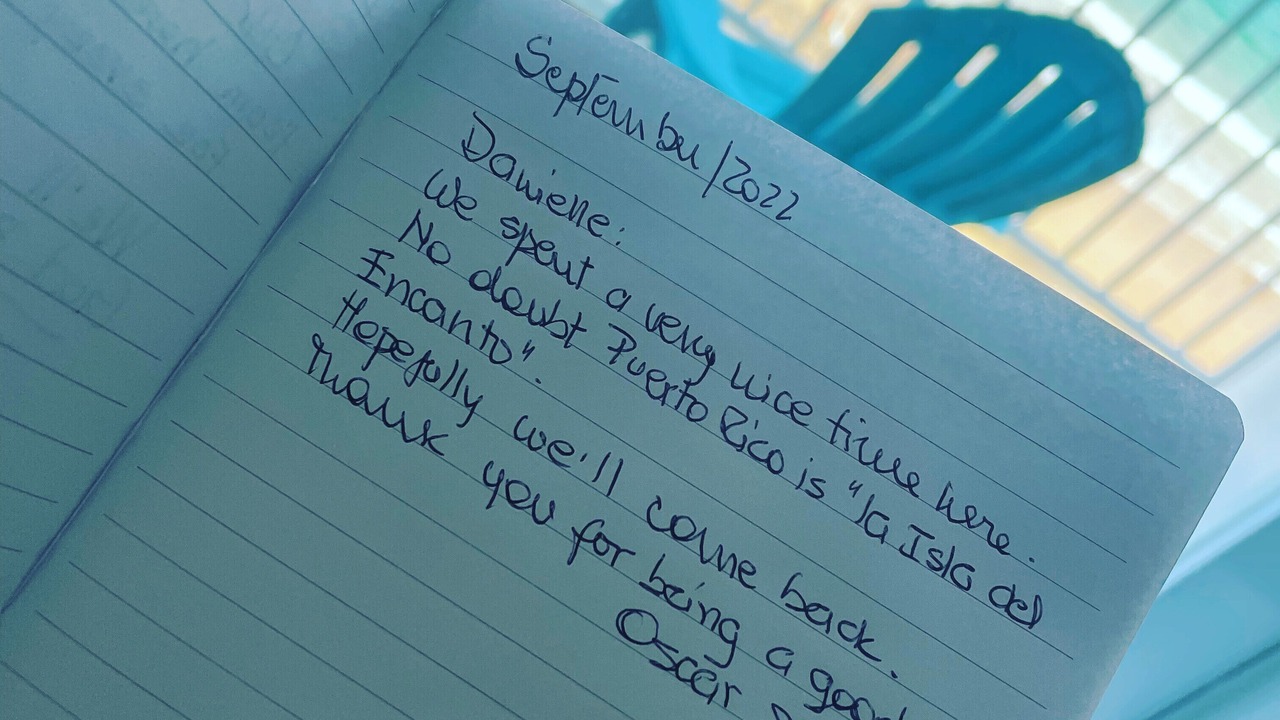 September/2022
Danielle:
We spent a very nice time here.
No doubt Puerto Rico is "la Isla del
Encanto".
Hopefully we'll come back.
Thank you for being a good
Oscar